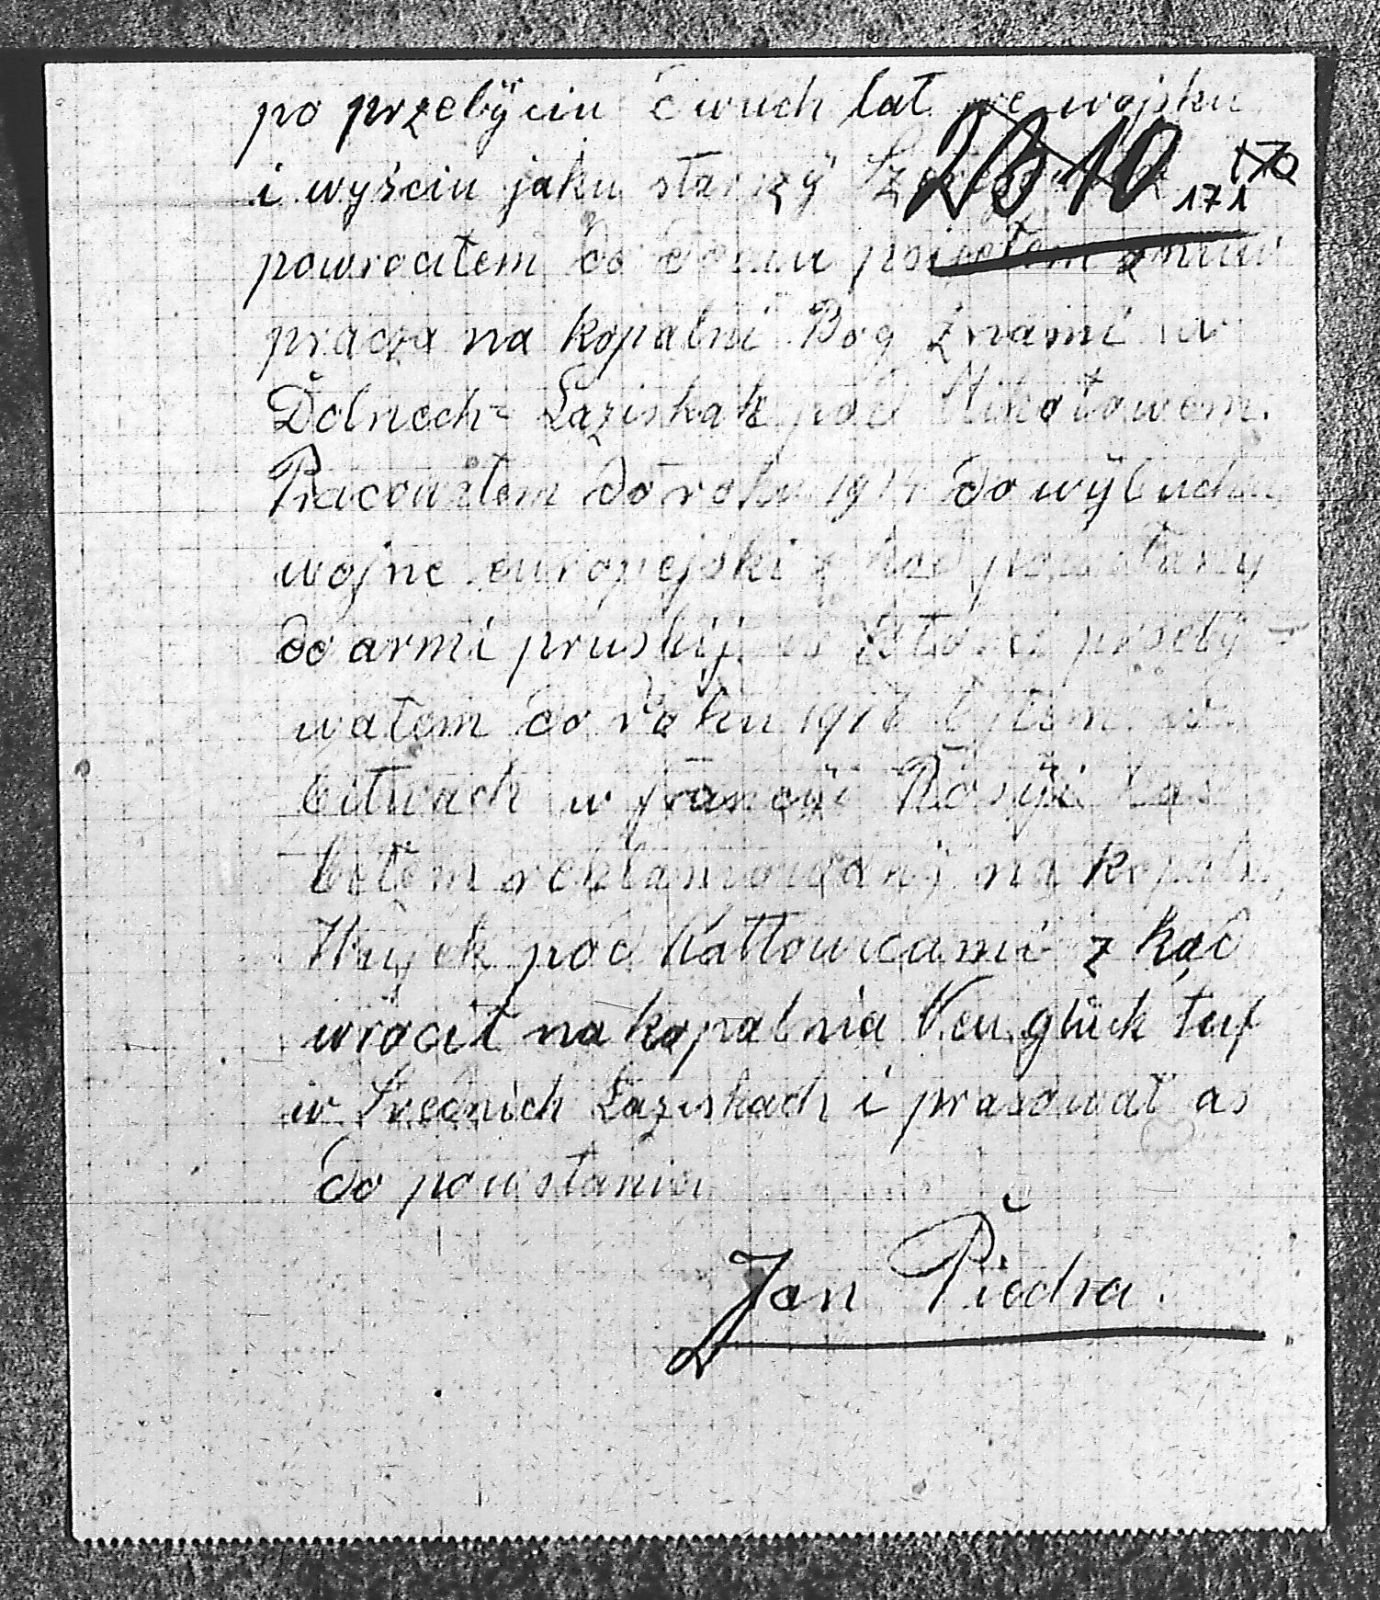 po przebÿciu dwuch lat we wojsku
i wyściu jaku starzÿ
2310 170
171
powrocitem do domu
praca na kopalni Bog znami w
Dolnech- Laziskak pod Mikołowem.
Pracowałem do roku 1914 do wÿbuchu
wojne europejski
do armi pruskij przebÿ-
wałem do roku 1918 bÿłem w
bitwach w francÿi Rosÿi
bełem reklamowanÿ na kopaln
Wujek pod Kattowicami z kąd
wrócił na kopalnia Neu glück tuf
w Srednich Laziskach i prasował as
do powstania
Jan Piedra.